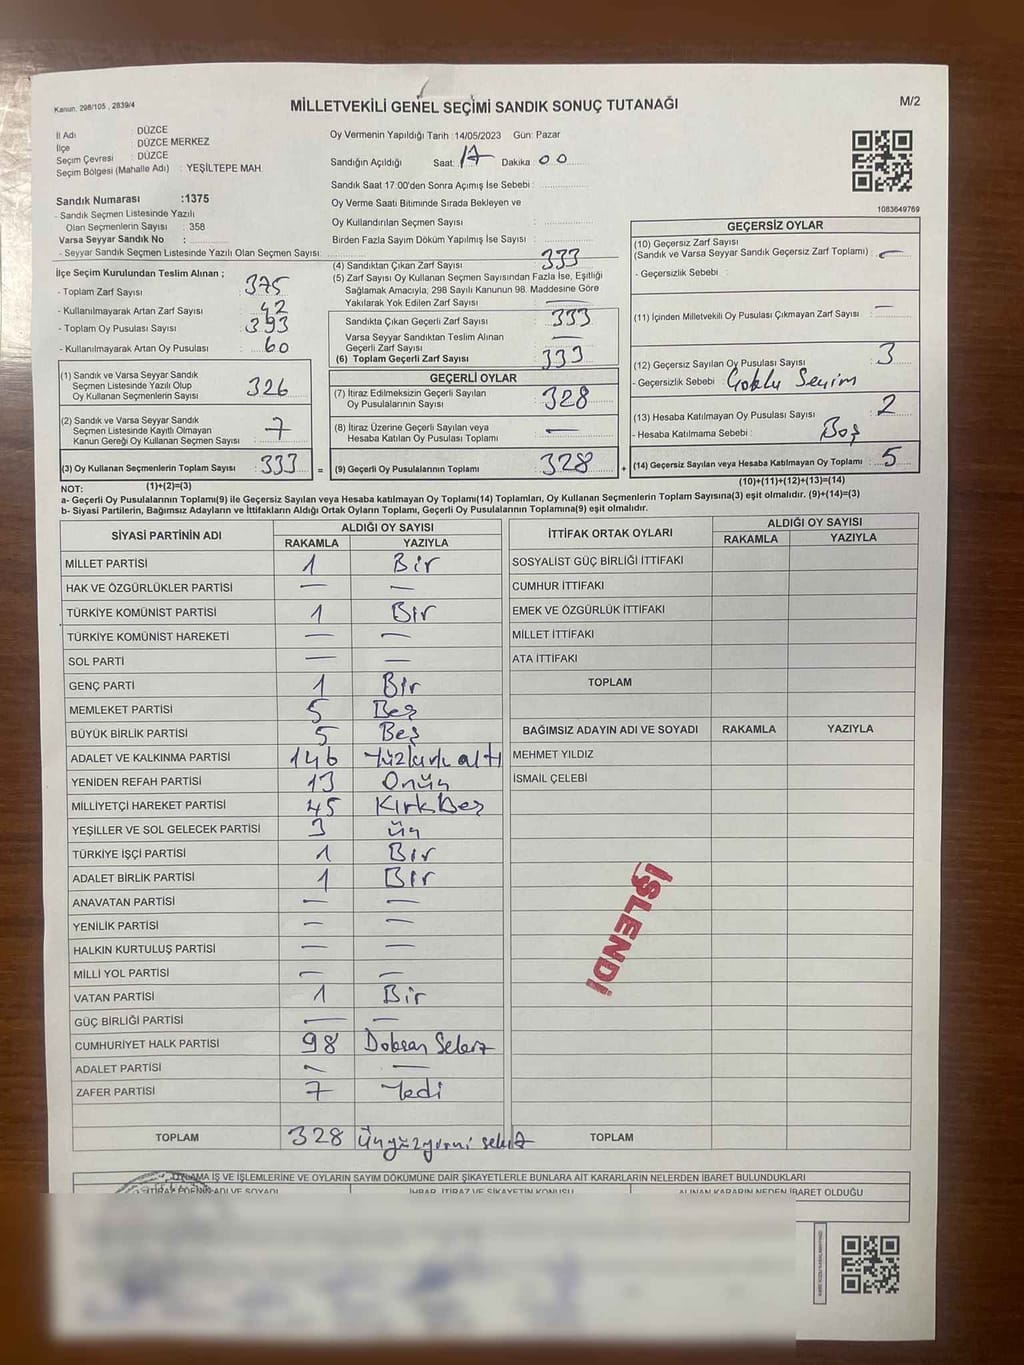 Kanun. 298/105 , 2839/4
MİLLETVEKİLİ GENEL SEÇİMİ SANDIK SONUÇ TUTANAĞI
M/2
İl Adı : DÜZCE
İlçe : DÜZCE MERKEZ
Seçim Çevresi : DÜZCE
Seçim Bölgesi (Mahalle Adı) : YEŞİLTEPE MAH.
Oy Vermenin Yapıldığı Tarih :14/05/2023 Gün: Pazar
Sandığın Açıldığı Saat: 17 Dakika 00
Sandık Saat 17:00'den Sonra Açımış İse Sebebi :
Oy Verme Saati Bitiminde Sırada Bekleyen ve
Oy Kullandırılan Seçmen Sayısı :
Birden Fazla Sayım Döküm Yapılmış İse Sayısı :
Sandık Numarası :1375
- Sandık Seçmen Listesinde Yazılı
Olan Seçmenlerin Sayısı : 358
Varsa Seyyar Sandık No :
- Seyyar Sandık Seçmen Listesinde Yazılı Olan Seçmen Sayısı :
1083649769
İlçe Seçim Kurulundan Teslim Alınan ;
- Toplam Zarf Sayısı : 375
- Kullanılmayarak Artan Zarf Sayısı : 42
- Toplam Oy Pusulası Sayısı : 393
- Kullanılmayarak Artan Oy Pusulası : 60
(1) Sandık ve Varsa Seyyar Sandık
Seçmen Listesinde Yazılı Olup
Oy Kullanan Seçmenlerin Sayısı : 326
(2) Sandık ve Varsa Seyyar Sandık
Seçmen Listesinde Kayıtlı Olmayan
Kanun Gereği Oy Kullanan Seçmen Sayısı : 7
(3) Oy Kullanan Seçmenlerin Toplam Sayısı : 333 =
(1)+(2)=(3)
(4) Sandıktan Çıkan Zarf Sayısı : 333
(5) Zarf Sayısı Oy Kullanan Seçmen Sayısından Fazla İse, Eşitliği
Sağlamak Amacıyla, 298 Sayılı Kanunun 98. Maddesine Göre
Yakılarak Yok Edilen Zarf Sayısı : —
Sandıkta Çıkan Geçerli Zarf Sayısı : 333
Varsa Seyyar Sandıktan Teslim Alınan
Geçerli Zarf Sayısı : —
(6) Toplam Geçerli Zarf Sayısı : 333
GEÇERLİ OYLAR
(7) İtiraz Edilmeksizin Geçerli Sayılan
Oy Pusulalarının Sayısı : 328
(8) İtiraz Üzerine Geçerli Sayılan veya
Hesaba Katılan Oy Pusulası Toplamı : —
(9) Geçerli Oy Pusulalarının Toplamı : 328 +
GEÇERSİZ OYLAR
(10) Geçersiz Zarf Sayısı
(Sandık ve Varsa Seyyar Sandık Geçersiz Zarf Toplamı) : —
- Geçersizlik Sebebi :
(11) İçinden Milletvekili Oy Pusulası Çıkmayan Zarf Sayısı : —
(12) Geçersiz Sayılan Oy Pusulası Sayısı : 3
- Geçersizlik Sebebi : Çoklu Seçim
(13) Hesaba Katılmayan Oy Pusulası Sayısı : 2
- Hesaba Katılmama Sebebi : Boş
(14) Geçersiz Sayılan veya Hesaba Katılmayan Oy Toplamı : 5
(10)+(11)+(12)+(13)=(14)
NOT:
a- Geçerli Oy Pusulalarının Toplamı(9) ile Geçersiz Sayılan veya Hesaba katılmayan Oy Toplamı(14) Toplamları, Oy Kullanan Seçmenlerin Toplam Sayısına(3) eşit olmalıdır. (9)+(14)=(3)
b- Siyasi Partilerin, Bağımsız Adayların ve İttifakların Aldığı Ortak Oyların Toplamı, Geçerli Oy Pusulalarının Toplamına(9) eşit olmalıdır.
SİYASİ PARTİNİN ADI ALDIĞI OY SAYISI
RAKAMLA YAZIYLA
MİLLET PARTİSİ 1 Bir
HAK VE ÖZGÜRLÜKLER PARTİSİ — —
TÜRKİYE KOMÜNİST PARTİSİ 1 Bir
TÜRKİYE KOMÜNİST HAREKETİ — —
SOL PARTİ — —
GENÇ PARTİ 1 Bir
MEMLEKET PARTİSİ 5 Beş
BÜYÜK BİRLİK PARTİSİ 5 Beş
ADALET VE KALKINMA PARTİSİ 146 Yüzkırk altı
YENİDEN REFAH PARTİSİ 13 Onüç
MİLLİYETÇİ HAREKET PARTİSİ 45 KırkBeş
YEŞİLLER VE SOL GELECEK PARTİSİ 3 üç
TÜRKİYE İŞÇİ PARTİSİ 1 Bir
ADALET BİRLİK PARTİSİ 1 Bir
ANAVATAN PARTİSİ — —
YENİLİK PARTİSİ — —
HALKIN KURTULUŞ PARTİSİ — —
MİLLİ YOL PARTİSİ — —
VATAN PARTİSİ 1 Bir
GÜÇ BİRLİĞİ PARTİSİ — —
CUMHURİYET HALK PARTİSİ 98 Doksan Sekiz
ADALET PARTİSİ — —
ZAFER PARTİSİ 7 Yedi
TOPLAM 328 Üçyüzyirmi sekiz
İTTİFAK ORTAK OYLARI ALDIĞI OY SAYISI
RAKAMLA YAZIYLA
SOSYALİST GÜÇ BİRLİĞİ İTTİFAKI
CUMHUR İTTİFAKI
EMEK VE ÖZGÜRLÜK İTTİFAKI
MİLLET İTTİFAKI
ATA İTTİFAKI
TOPLAM
BAĞIMSIZ ADAYIN ADI VE SOYADI RAKAMLA YAZIYLA
MEHMET YILDIZ
İSMAİL ÇELEBİ
İŞLENDİ
TOPLAM
İŞ VE İŞLEMLERİNE VE OYLARIN SAYIM DÖKÜMÜNE DAİR ŞİKAYETLERLE BUNLARA AİT KARARLARIN NELERDEN İBARET BULUNDUKLARI
İTİRAZ EDENİN ADI VE SOYADI İHBAR, İTİRAZ VE ŞİKAYETİN KONUSU ALINAN KARARIN NEDEN İBARET OLDUĞU